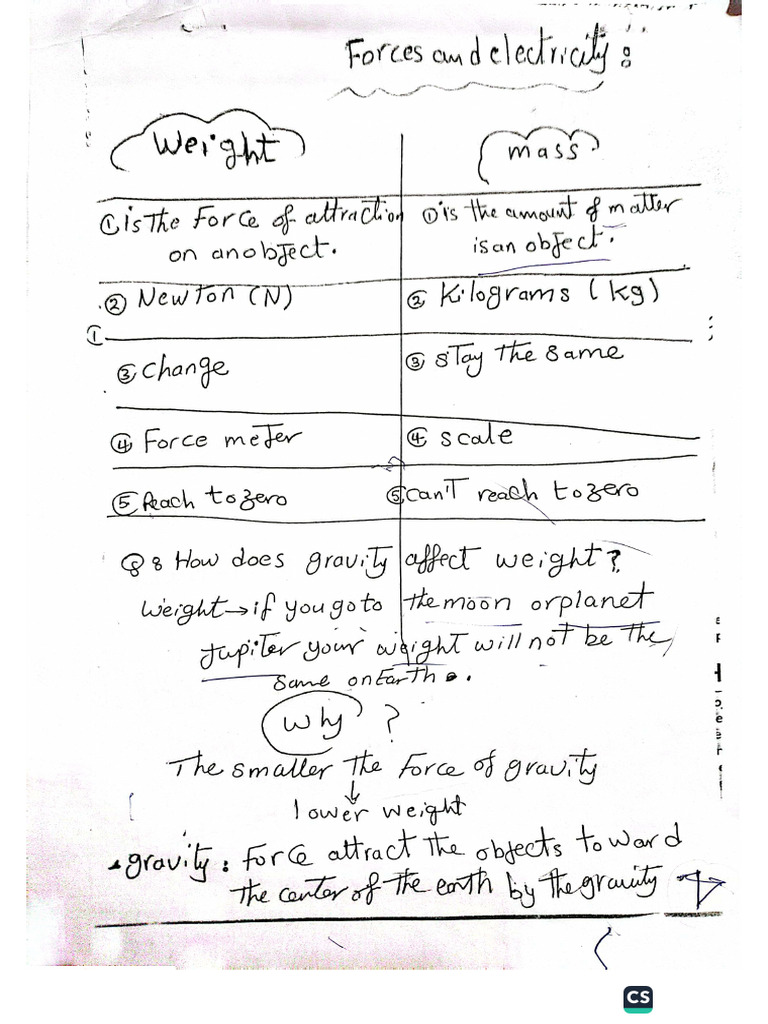 Forces and electricity:
Weight
mass
① is The Force of attraction
on an object.
① is the amount of matter
is an object.
② Newton (N)
② Kilograms (kg)
①
③ change
③ stay the same
④ Force meter
④ scale
⑤ Reach to zero
⑤ can't reach to zero
Q: How does gravity affect weight?
weight → if you go to the moon or planet
Jupiter your weight will not be the
same on Earth.
why ?
The smaller the Force of gravity
↓
lower weight
• gravity: Force attract the objects to ward
the center of the earth by the gravity
CS